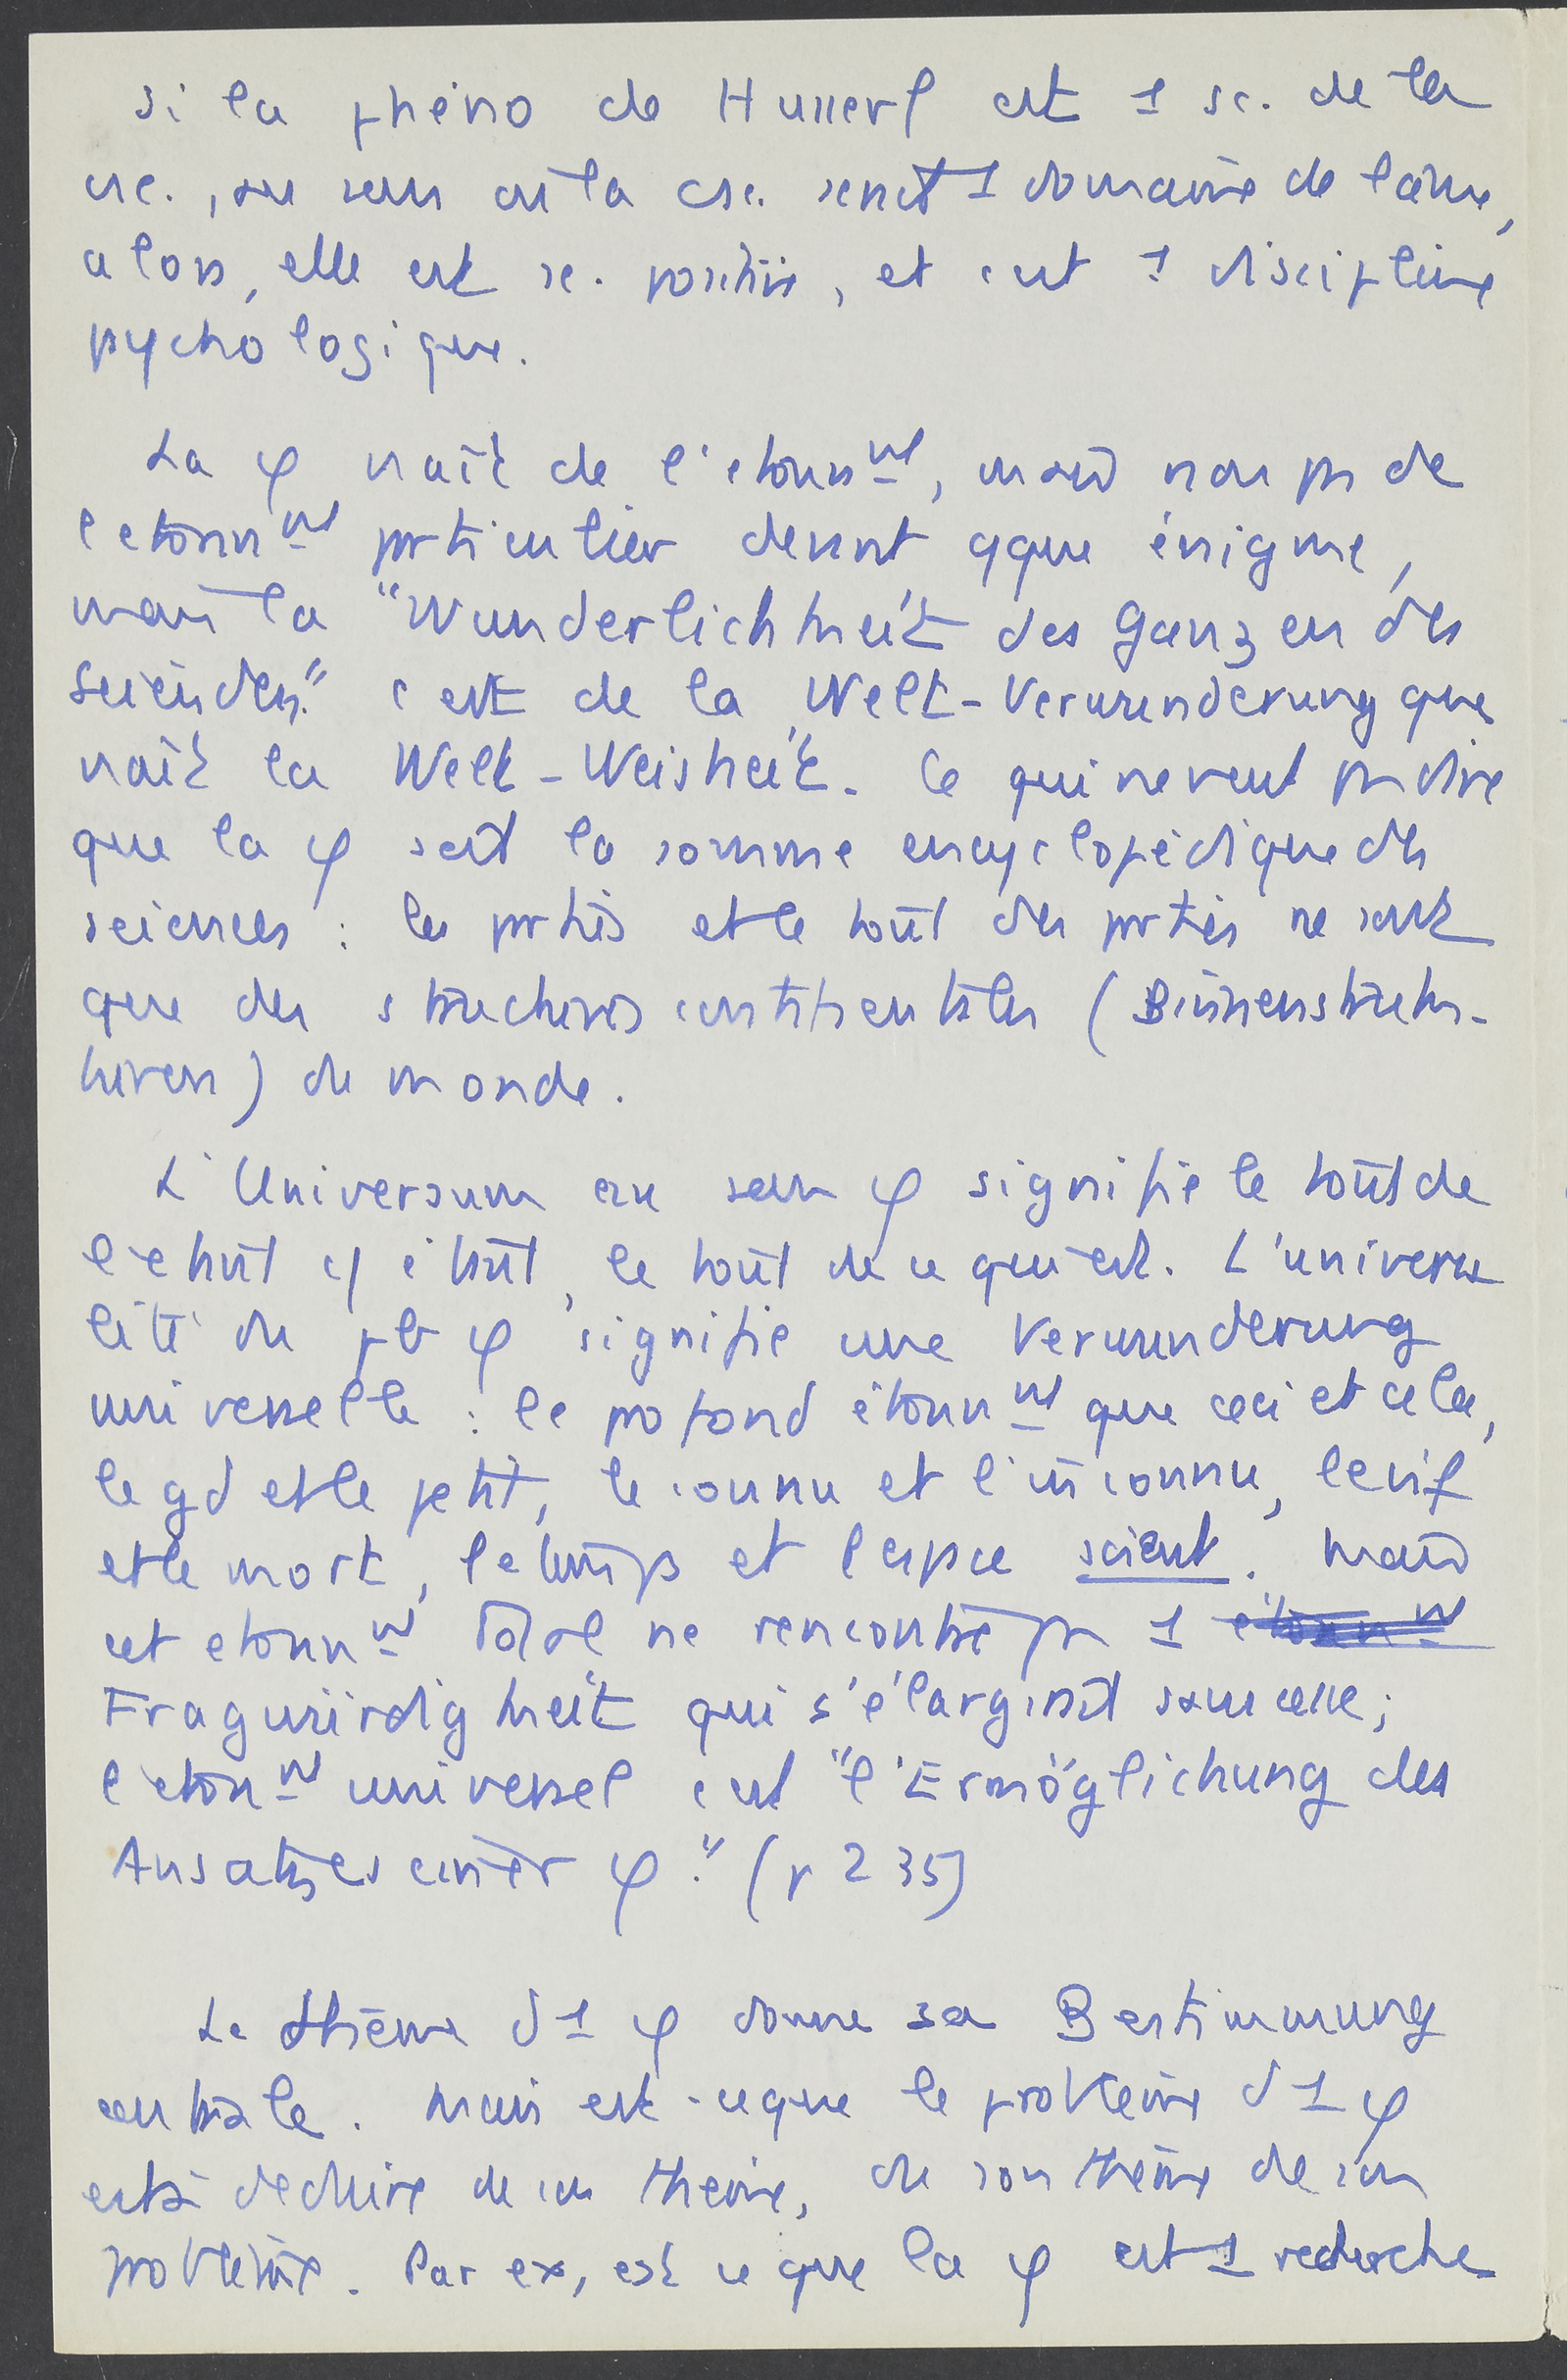 Si la phéno de Husserl est 1 sc. de la
csc., au sens où la csc. serait 1 domaine de l'être,
alors, elle est sc. positive, et c'est 1 discipline
psychologique.
La φ naît de l'étonnᵐᵗ, mais non ps de
l'étonnᵐᵗ prticulier devant qque énigme,
mais la "Wunderlichkeit des Ganzen des
Seienden." c'est de la "Welt-Verwunderung que
naît la Welt-Weisheit". Ce qui ne veut ps dire
que la φ soit la somme encyclopédique des
sciences : les prties et le tout des prties ne sont
que des structures (Binnenstruk-
turen) du monde.
L'Universum au sens φ signifie le tout de
l'étant étant, le tout de ce qui est. L'universa
lité du pb φ signifie une Verwunderung
universelle : le profond étonnᵐᵗ que ceci et cela,
le gd et le petit, le connu et l'inconnu, le vif
et le mort, le temps et l'espace soient. Mais
cet étonnᵐᵗ total ne rencontre ps 1 étonnᵐᵗ
Fragwürdigkeit qui s'élargirait sans cesse;
l'étonᵐᵗ universel est "l'Ermöglichung des
Ansatzes einer φ." (p 235)
Le thème d'1 φ donne sa Bestimmung
centrale. Mais est-ce que le problème d'1 φ
est à déduire de son thème, ou son thème de son
problème. Par ex, est ce que la φ est 1 recherche